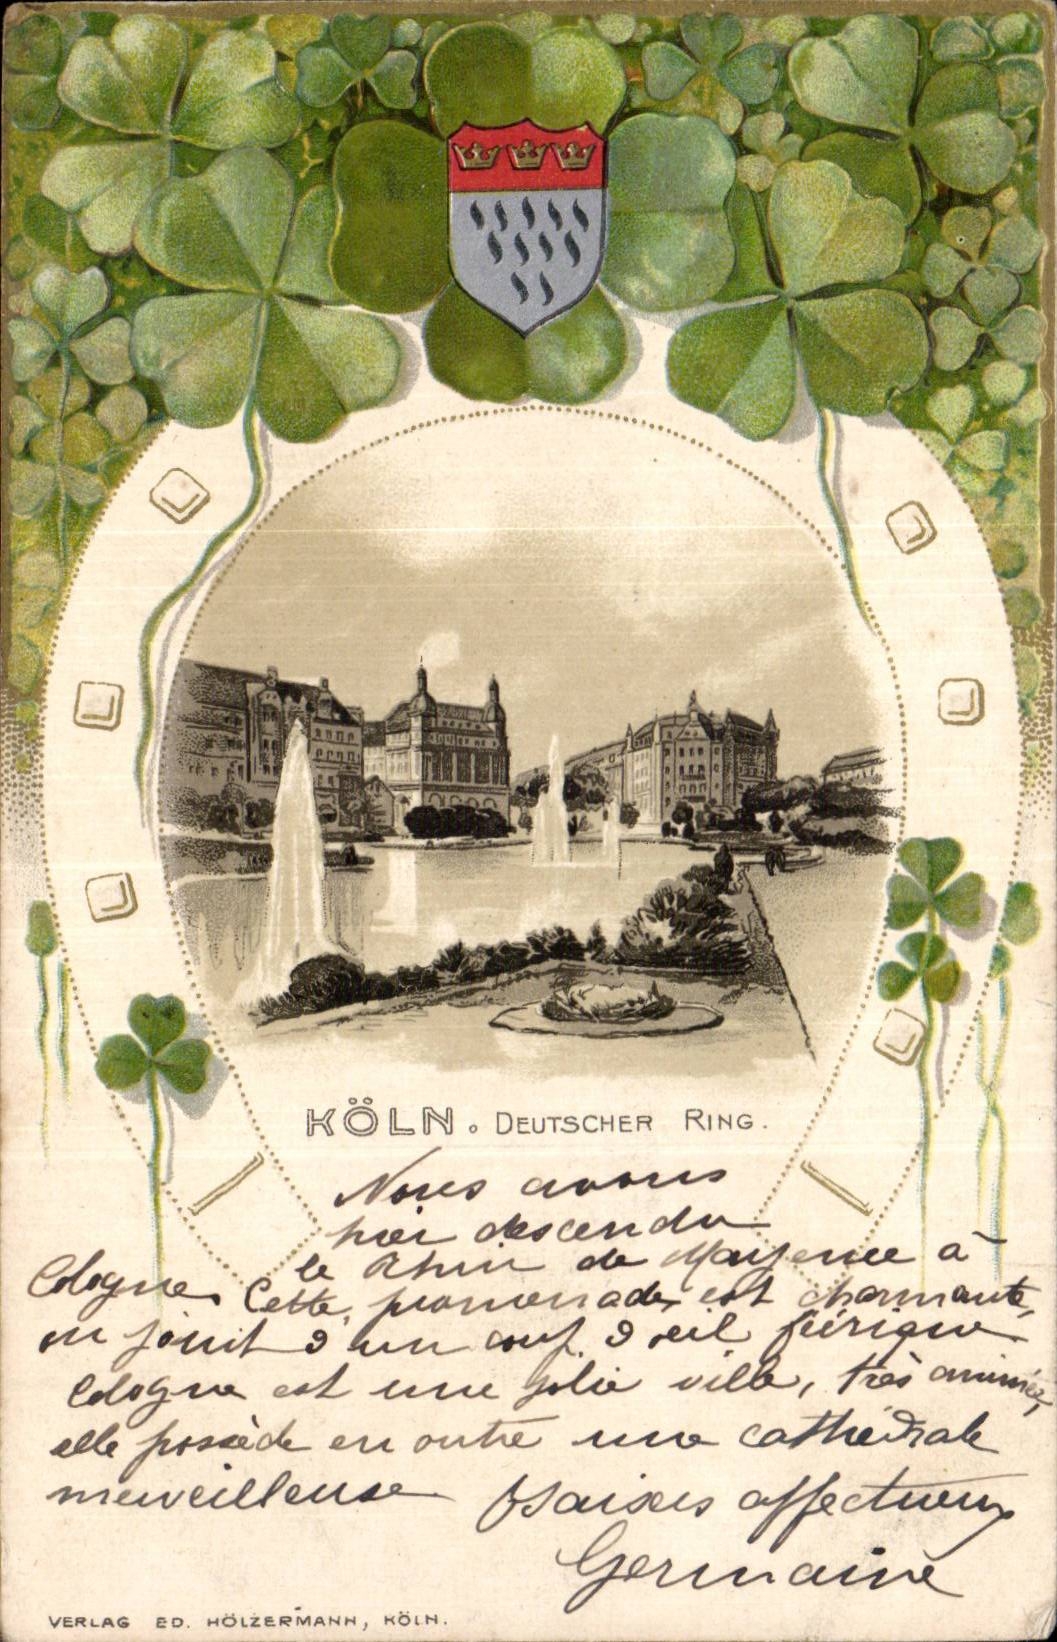 KÖLN. DEUTSCHER RING.
Nous avons
hier descendu
le Rhin de Mayence à
Cologne. Cette promenade est charmante,
on jouit d'un coup d'oeil féérique
Cologne est une jolie ville, très animée,
elle possède en outre une cathédrale
merveilleuse Baisers affectueux
Germaine
VERLAG ED. HÖLZERMANN, KÖLN.